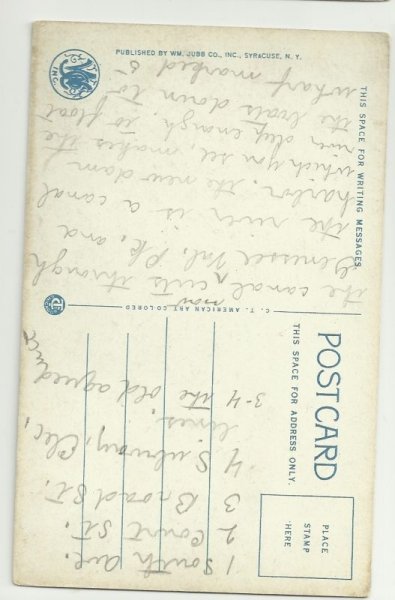 PUBLISHED BY WM. JUBB CO., INC., SYRACUSE, N. Y.
THIS SPACE FOR WRITING MESSAGES
C. T. AMERICAN ART COLORED
POSTCARD
THIS SPACE FOR ADDRESS ONLY.
PLACE
STAMP
HERE
INC.
1 South Ave.
2 Court St.
3 Broad St.
4 Subway, Elec,
lines.
3-4 the old aqueduct
now
the canal, cuts through
Genessee Val. Pk. and
the river is a canal
harbor. the new dam
which you see, makes the
river deep enough to float
the boats down to
wharf marked 5